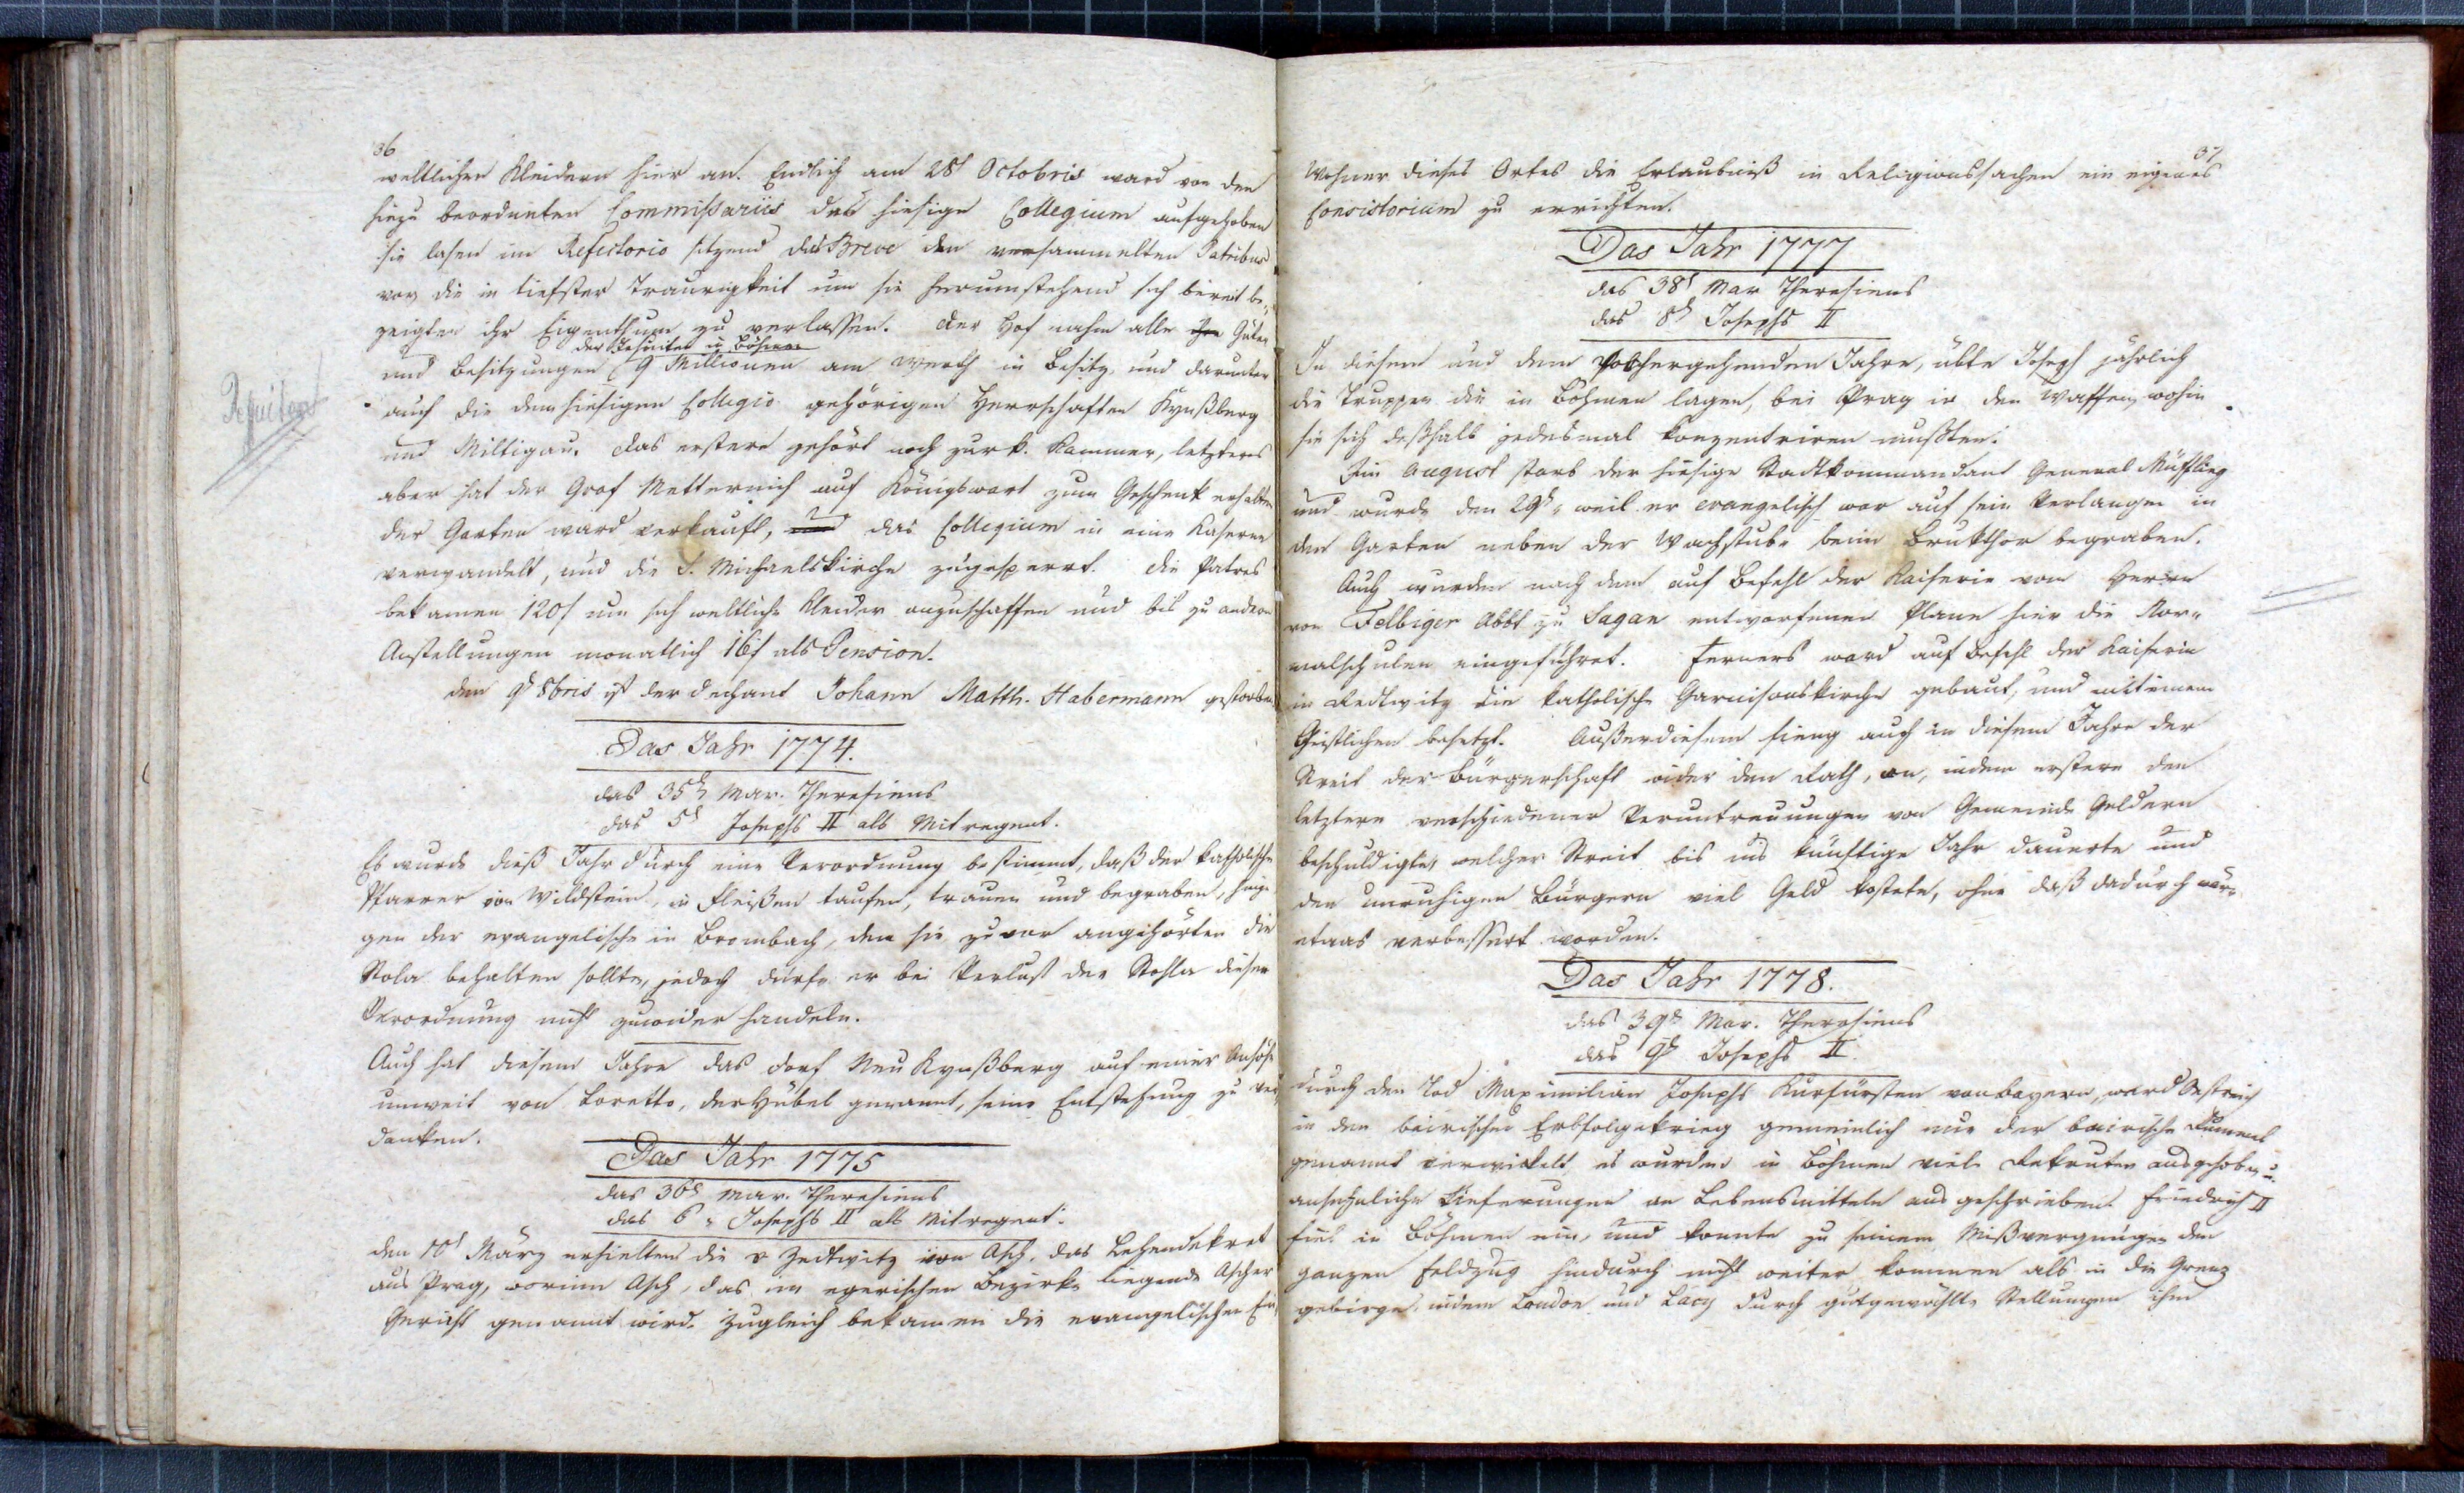 36
weltlichen Kleidern hier an. Endlich am 28t Octobris ward von den
hiezu beordneten Commissariis das hiesige Collegium aufgehoben
sie lasen im Refectorio sitzend das Breve den versammelten Patribus
vor, die in tiefster Traurigkeit um sie herumstehend sich bereit be-
zeigten ihr Eigenthum zu verlassen. Der Hof nahm alle Güter
der Jesuiten in Böhmen
und Besitzungen (9 Millionen am Werth in Besitz, und darunter
Jesuiten
auch die dem hiesigen Collegio gehörigen Herrschaften Kynßberg
und Miltigau. Das erstere gehört noch zur k. Kammer, letzteres
aber hat der Graf Metternich auf Königswart zum Geschenk erhalten
der Garten ward verkauft, und das Collegium in eine Kaserne
verwandelt, und die S. Michaelskirche zugesperrt. Die Patres
bekamen 120f um sich weltliche Kleider anzuschaffen und bis zu andern
Anstellungen monatlich 16f als Pension.
den 9t 8bris ist der Dechant Johann Matth. Habermann gestorben.
Das Jahr 1774.
das 35t Mar. Theresiens
das 5t Josephs II als Mitregent.
Es wurde dieß Jahr durch eine Verordnung bestimmt, daß der katholische
Pfarrer von Wildstein, in Fleißen taufen, trauen und begraben, hinge-
gen der evangelische in Brombach, dem sie zuvor angehörten die
Stola behalten sollte, jedoch dürfe er bei Verlust der Stohla dieser
Verordnung nicht zuwider handeln.
Auch hat diesem Jahre das Dorf Neu Kynßberg auf einer Anhöhe
unweit von Loretto, der Hübel genannt, seine Entstehung zu ver-
danken.
Das Jahr 1775
das 36t Mar. Theresiens
das 6 " Josephs II als Mitregent.
den 10t März erhielten die v Zedtwitz von Asch, das Lehendekret
aus Prag, worinn Asch, das im egerischen Bezirke liegende Ascher
Gericht genannt wird. Zugleich bekamen die evangelischen Ein-
37
wohner dieses Ortes die Erlaubniß in Religionssachen ein eigenes
Consistorium zu errichten.
Das Jahr 1777
das 38t Mar Theresiens
das 8t Josephs II
In diesem und dem vorhergehenden Jahre, übte Joseph jährlich
die Truppen die in Böhmen lagen, bei Prag in den Waffen, wohin
sie sich deßhalb jedesmal konzentriren mußten.
Im August starb der hiesige Stadtkommandant General Müffling
und wurde den 29t, weil er evangelisch war auf sein Verlangen in
den Garten neben der Wachstube beim Brukthor begraben.
Auch wurden nach dem auf Befehl der Kaiserin vom Herrn
von Felbiger Abbt zu Sagan entworfenen Plane hier die Nor-
malschulen eingeführet. Ferners ward auf Befehl der Kaiserin
in Redtwitz die katholische Garnisonskirche gebaut, und mit einem
Geistlichen besetzt. Außerdiesem fieng auch in diesem Jahre der
Streit der Bürgerschaft wider den Rath, an, indem erstere den
letztern verschiedener Veruntreuungen von Gemeinde Geldern
beschuldigte, welcher Streit bis ins künftige Jahr dauerte und
den unruhigen Bürgern viel Geld kostete, ohne daß dadurch wär
etwas verbessert worden.
Das Jahr 1778.
das 39t Mar. Theresiens
das 9t Josephs II.
Durch den Tod Maximilian Josephs Kurfürsten von Bayern, ward Östreich
in den bairischen Erbfolgekrieg gemeinlich nur der bairische
genannt verwickelt, es wurden in Böhmen viele Rekruten ausgehoben u.
ansehnliche Lieferungen an Lebensmitteln ausgeschrieben. Friedrich II
fiel in Böhmen ein, und konnte zu seinem Mißvergnügen den
ganzen Feldzug hindurch nicht weiter kommen als in die Grenz
gebirge, indem Loudon und Lacy durch gutgewählte Stellungen ihm